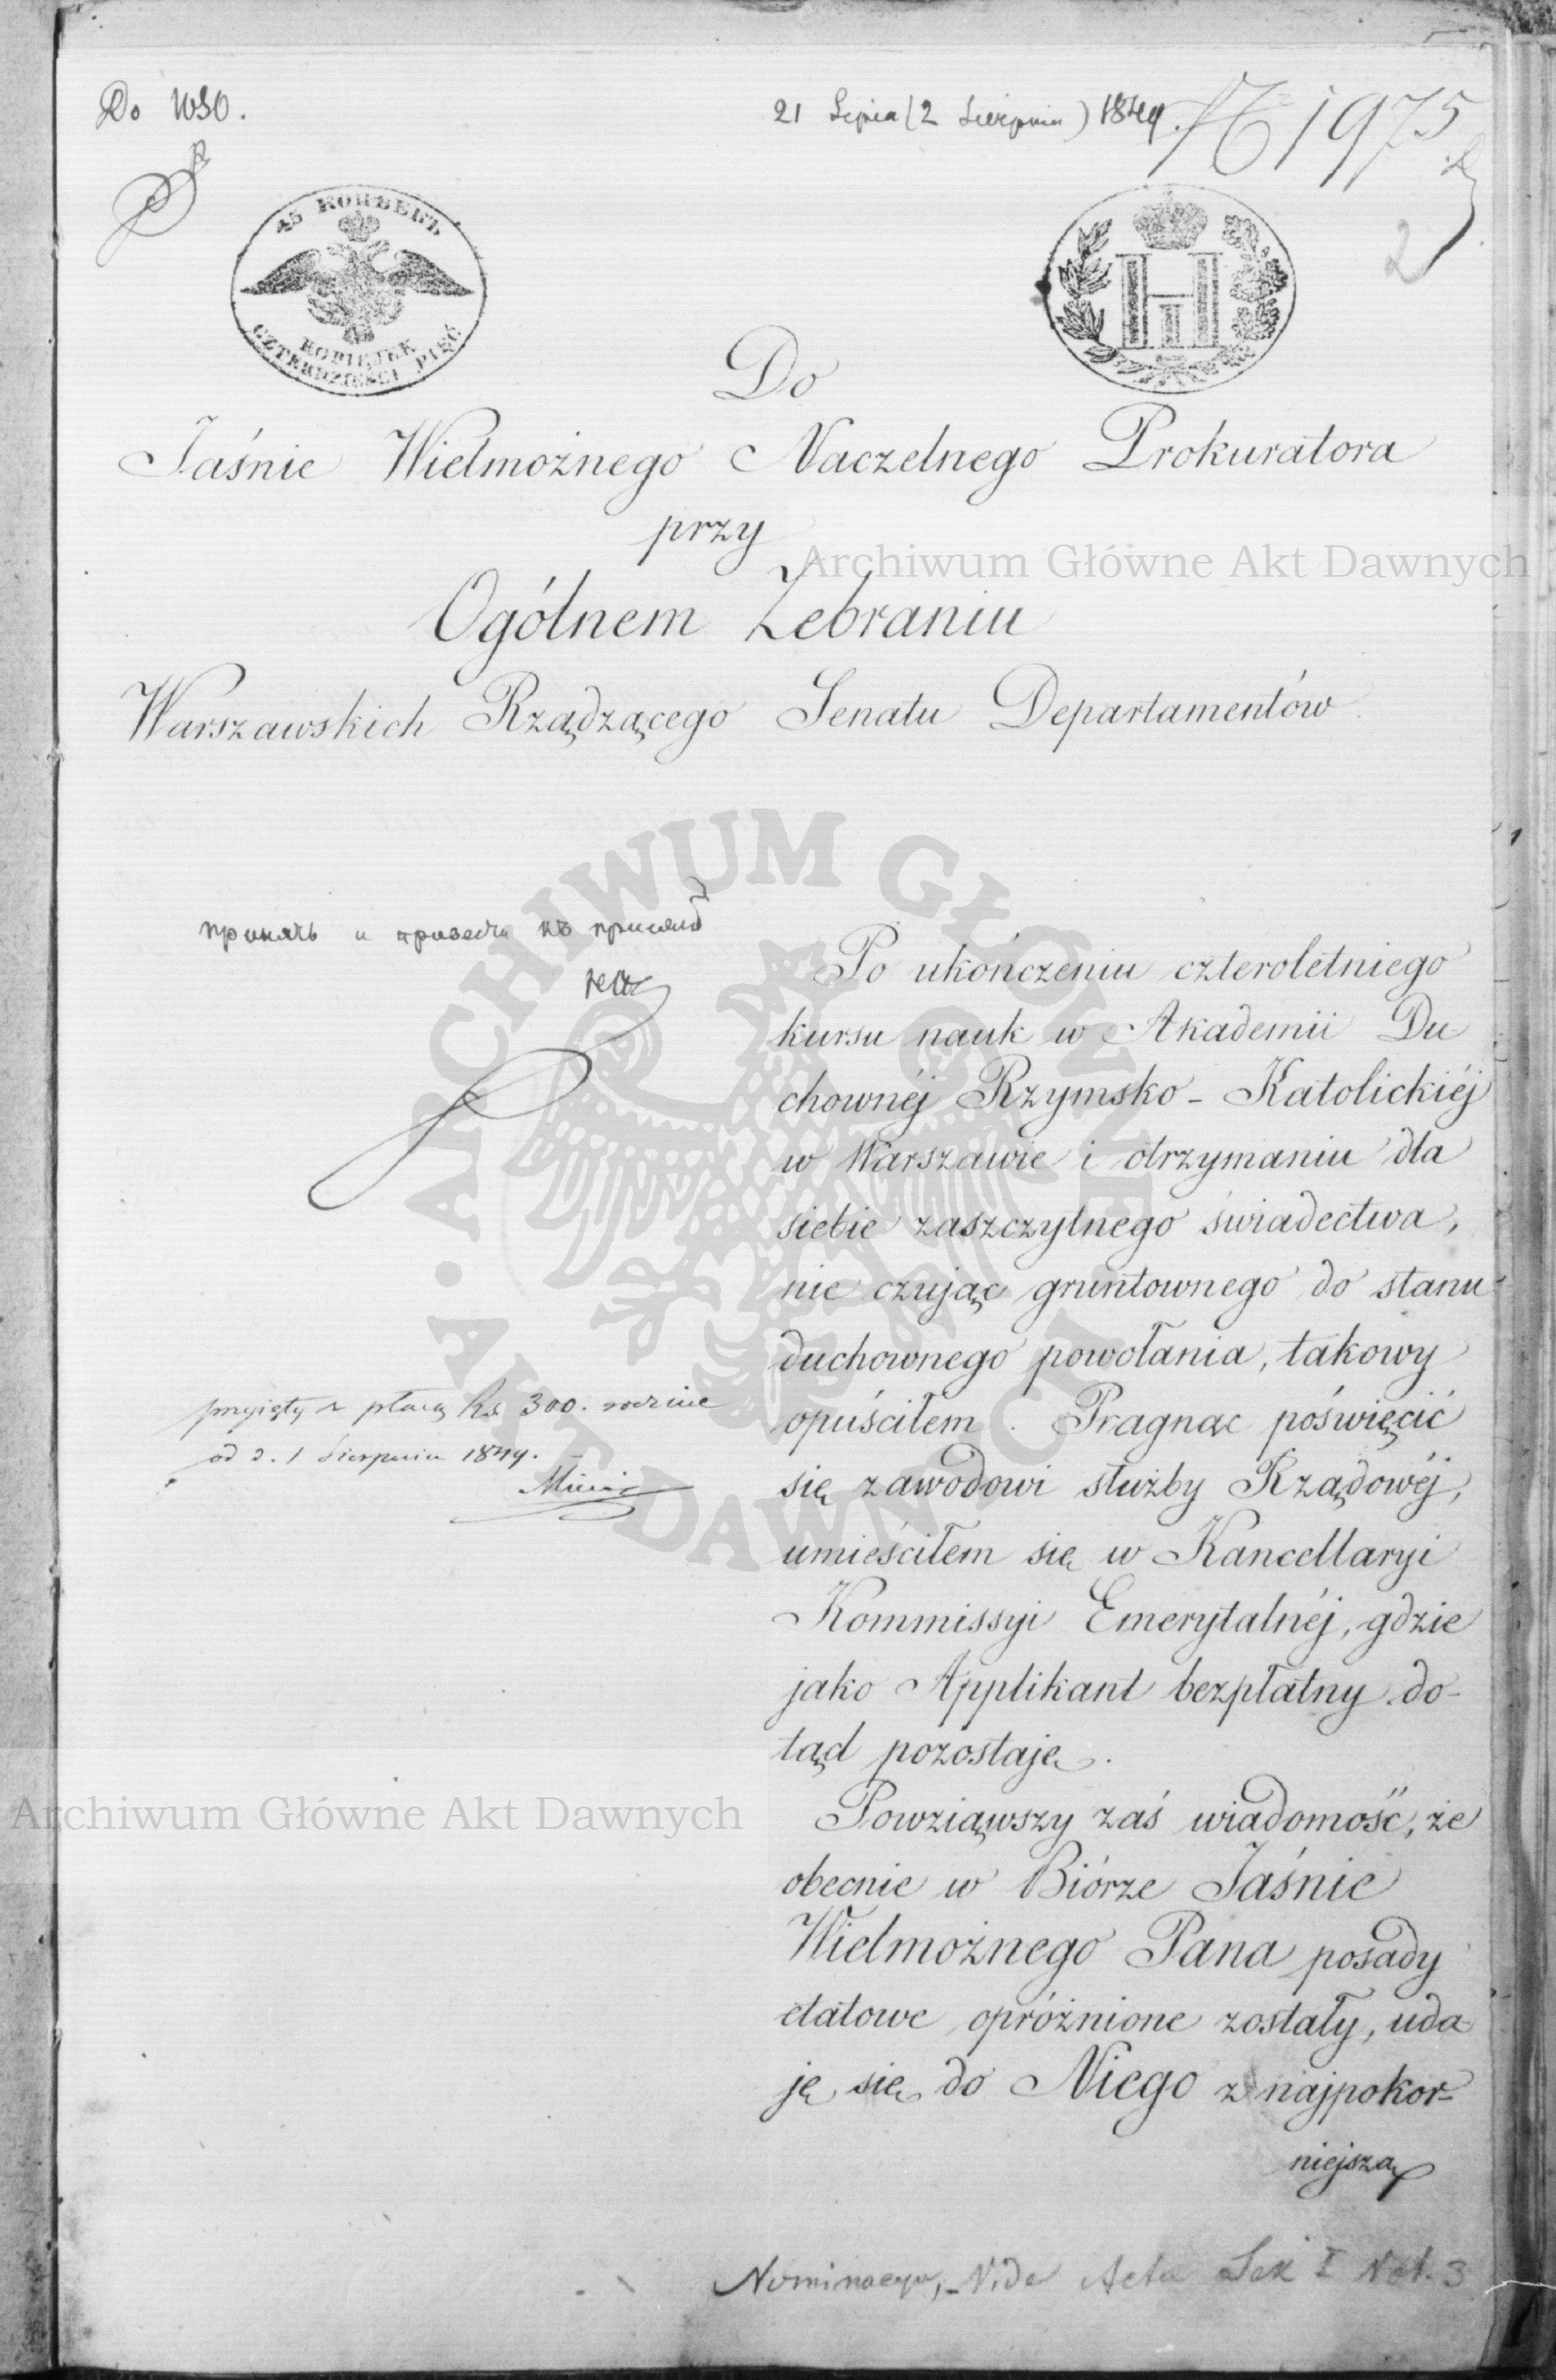 Do 1030.
21 Lipca (2 Sierpnia) 1849.
№ 1975
2
45 КОПѢЕКЪ
KOPIEJEK
CZTERDZIEŚCI PIĘĆ
Н
Do
Jaśnie Wielmożnego Naczelnego Prokuratora
przy
Ogólnem Zebraniu
Warszawskich Rządzącego Senatu Departamentów
принять и привести къ присягѣ
Po ukończeniu czteroletniego
kursu nauk w Akademii Du
chownéj Rzymsko - Katolickiéj
w Warszawie i otrzymaniu dla
siebie zaszczytnego świadectwa,
nie czując gruntownego do stanu
duchownego powołania, takowy
opuściłem. Pragnąc poświęcić
się zawodowi służby Rządowéj,
umieściłem się w Kancellaryi
Kommissyi Emerytalnéj, gdzie
jako Applikant bezpłatny do-
tąd pozostaję.
Powziąwszy zaś wiadomość, że
obecnie w Biórze Jaśnie
Wielmożnego Pana posady
etatowe opróżnione zostały, uda
ję się do Niego z najpokor-
niejszą
przyięty z płacą Rs 300. rocznie
od d. 1 Sierpnia 1849.
Nominacya, Vide Acta Sek I Vol. 3
Archiwum Główne Akt Dawnych
ARCHIWUM GŁÓWNE AKT DAWNYCH
Archiwum Główne Akt Dawnych